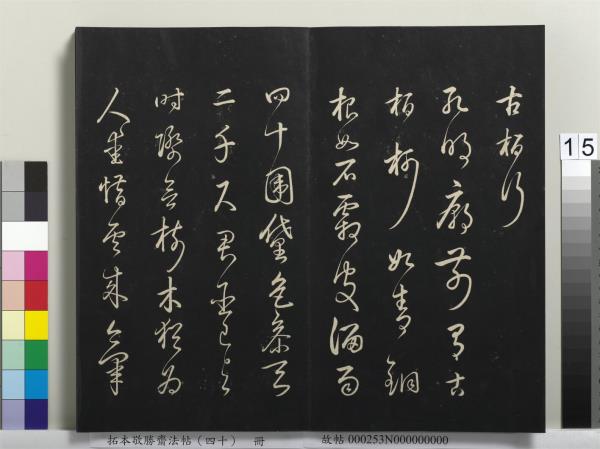 古柏行
孔明廟前有古
柏柯如青銅
根如石霜皮溜雨
四十圍黛色參天
二千尺君臣已與
時際會樹木猶為
人愛惜雲來氣
15
拓本敬勝齋法帖（四十） 冊 故帖 000253N000000000